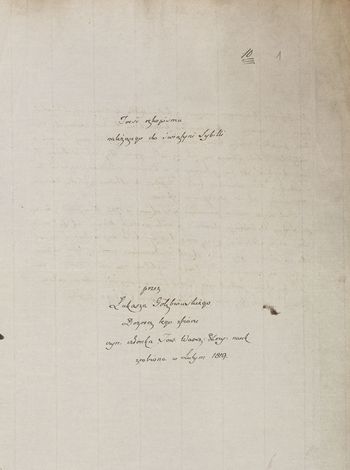 10. 1
Treść rękopisma
należącego do świątyni Sybilli
przez
Łukasza Gołębiowskiego
tego
członka Tow. Warsz. Przyj: nauk
zrobiona w Lutym 1819.